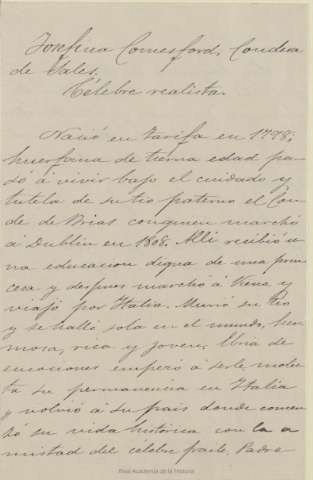 Josefina Comesford, Condesa
de Sales.
Célebre realista.
Nació en Tarifa en 1798;
huerfana de tierna edad pa-
só á vivir bajo el cuidado y
tutela de su tio paterno el Con-
de de Brias conquien marchó
á Dublin en 1808. Alli recibió u-
na educacion digna de una prin-
cesa y despues marchó á Viena y
viajó por Italia. Murió su tio
y se halló sola en el mundo, her-
mosa, rica y joven. Ebria de
emociones empezó á serle moles-
ta su permanencia en Italia
y volvió á su pais donde comen-
zó su vida histórica con la a
mistad del célebre fraile Padre
Real Academia de la Historia